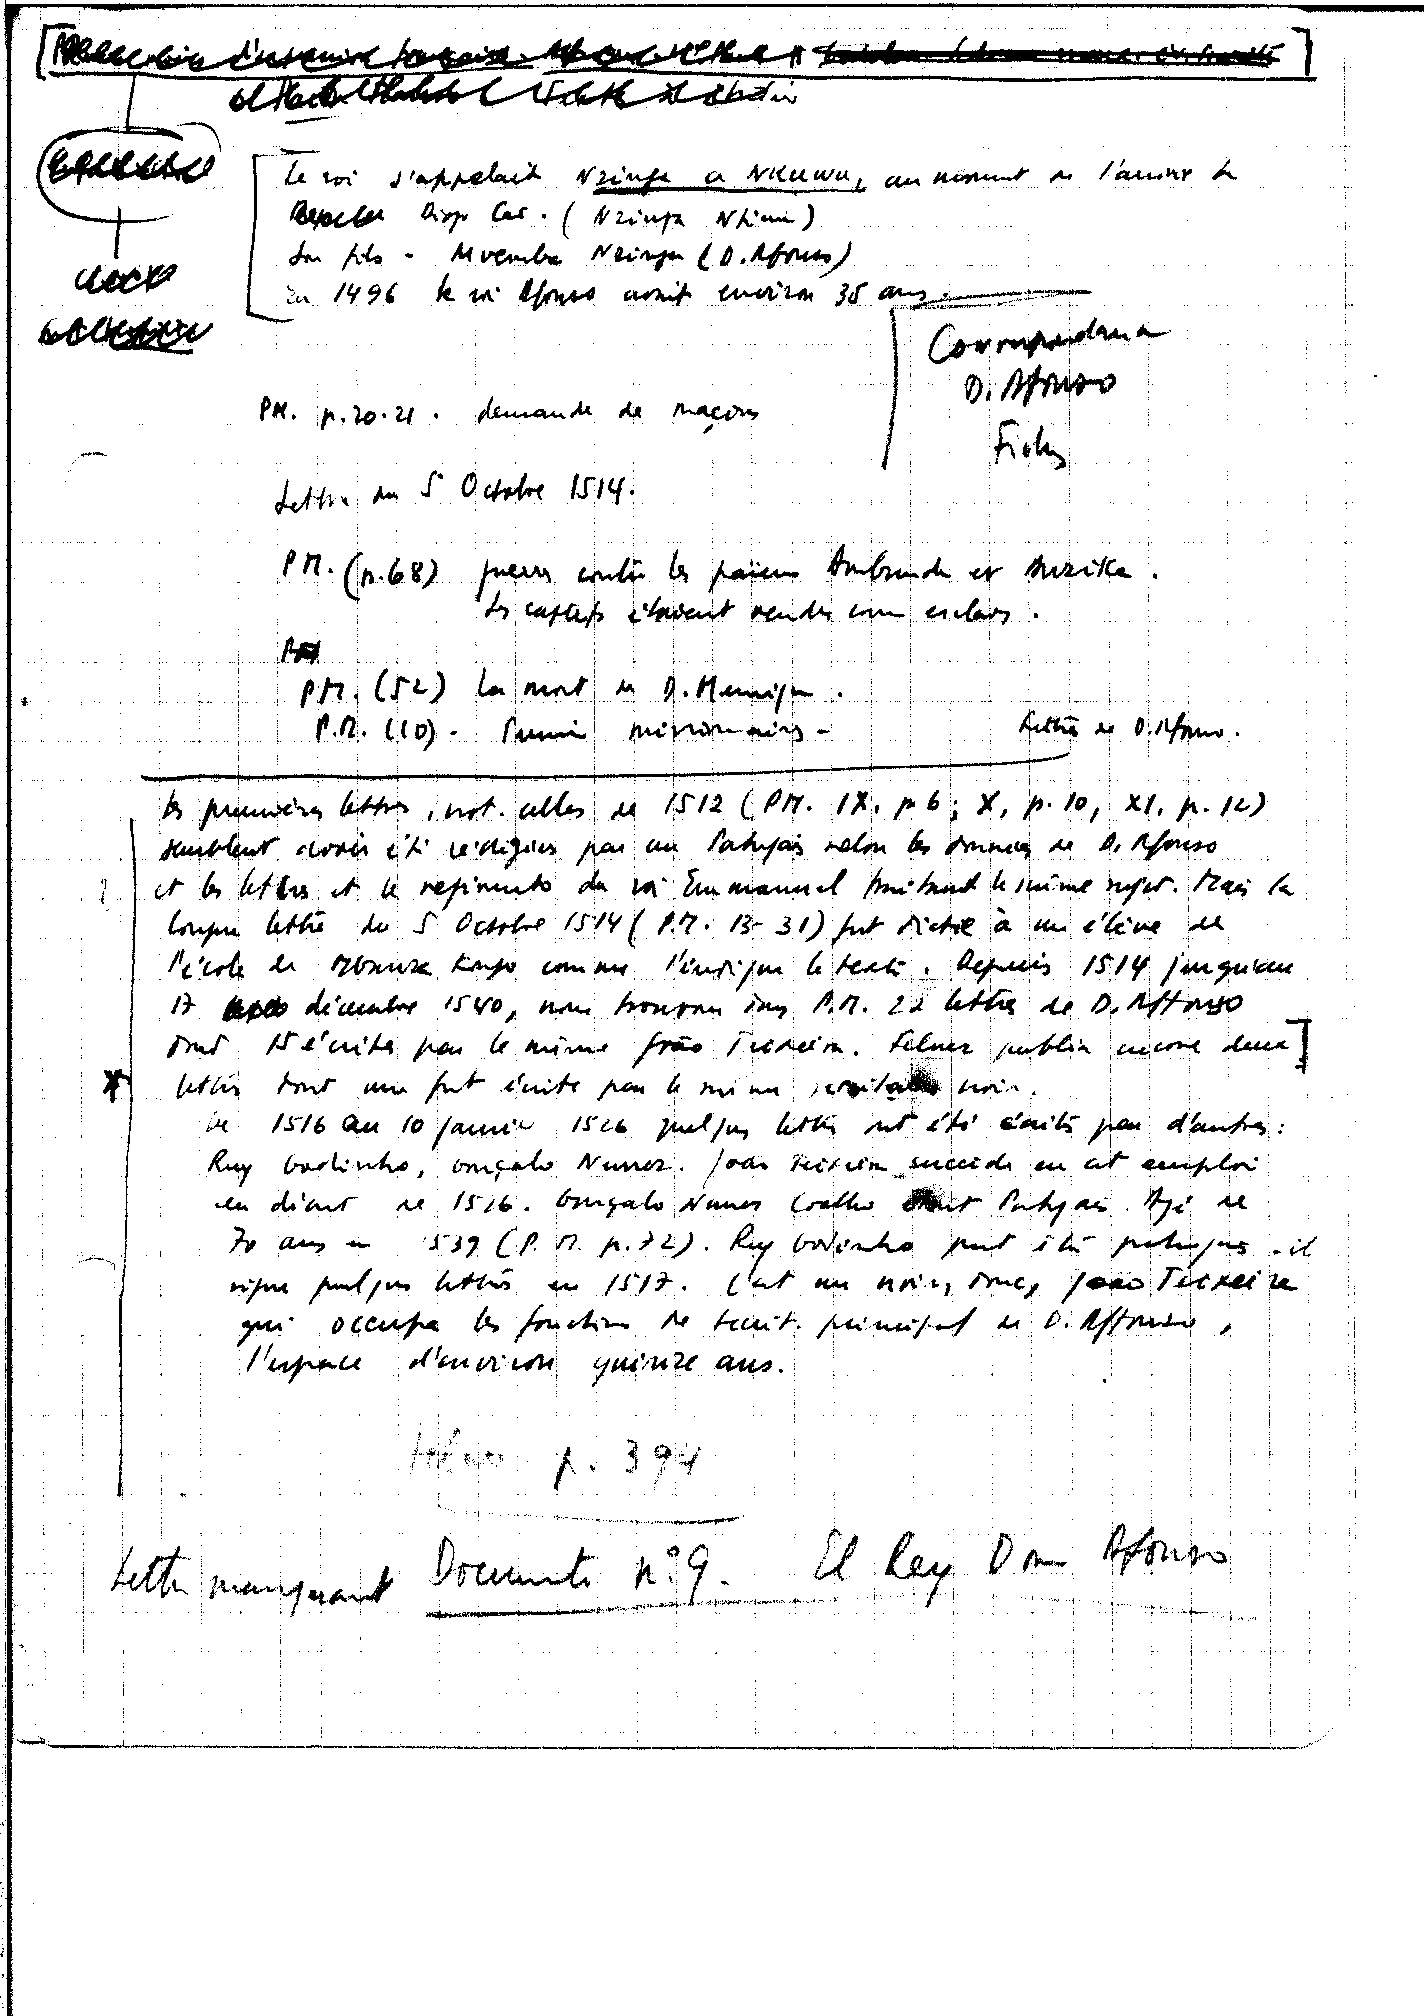 Le roi s'appelait Nzinga a Nkuwu, au moment de l'arrivée de
Diogo Cao. (Nzinga Nkuwu)
Son fils - Mvemba Nzinga (D. Afonso)
En 1496 le roi Afonso avait environ 35 ans.
Correspondance
D. Afonso
Fiches
PM. p. 20-21. demande de maçons
Lettre du 5 Octobre 1514.
PM. (p. 68) guerres contre les païens Ambundu et Anzika.
Les captifs étaient vendus comme esclaves.
PM. (52) La mort de D. Henrique.
P.M. (10) - Premiers missionnaires -
Lettres de D. Afonso.
Les premières lettres, not. celles de 1512 (PM. IX, p 6; X, p. 10, XI, p. 12)
semblent avoir été rédigées par un Portugais selon les données de D. Afonso
et les lettres et le regimento du roi Emmanuel traitant le même sujet. Mais la
longue lettre du 5 Octobre 1514 (P.M. 13-31) fut dictée à un élève de
l'école de Mbanza Kongo comme l'indique le texte. Depuis 1514 jusqu'au
17 décembre 1540, nous trouvons dans P.M. 22 lettres de D. Affonso
dont 15 écrites par le même João Teixeira. Felner publia encore deux
lettres dont une fut écrite par le même noir.
De 1516 au 10 janvier 1526 quelques lettres ont été écrites par d'autres:
Ruy Godinho, Gonçalo Nunez. João Teixeira succède en cet emploi
en début de 1526. Gonçalo Nunes Coelho était Portugais. Agé de
70 ans en 1539 (P. M. p. 72). Ruy Godinho peut être portugais - il
signe quelques lettres en 1517. C'est un noir, donc, João Teixeira
qui occupa les fonctions de secrét. principal de D. Affonso,
l'espace d'environ quinze ans.
p. 394
Lettre manquant Documento nº 9. El Rey Dom Afonso